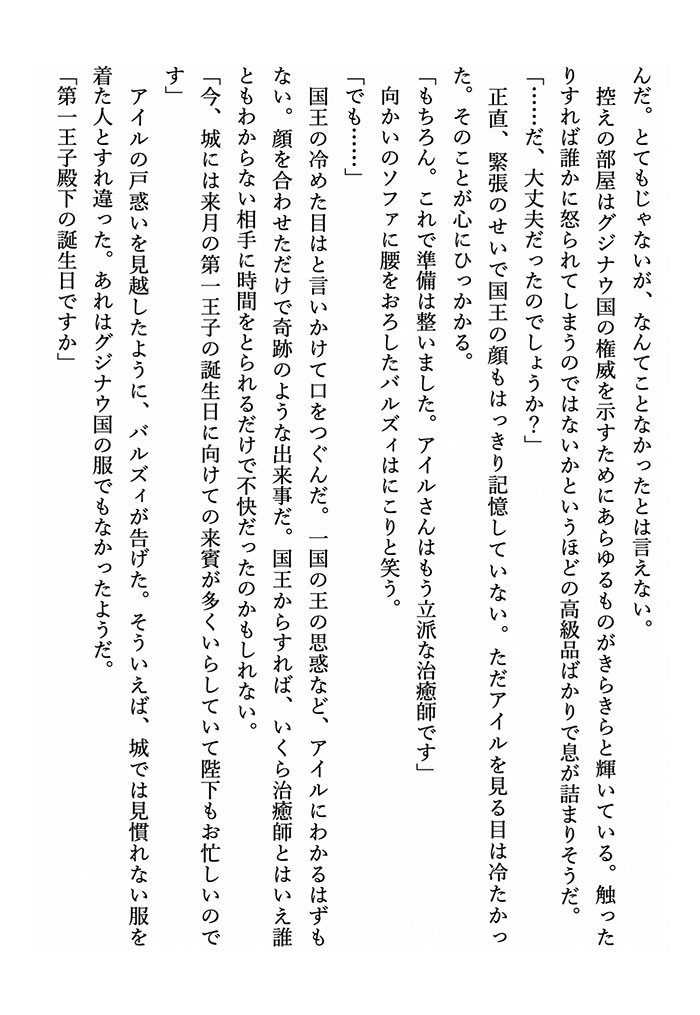 んだ。とてもじゃないが、なんてことなかったとは言えない。
　控えの部屋はグジナウ国の権威を示すためにあらゆるものがきらきらと輝いている。触った
りすれば誰かに怒られてしまうのではないかというほどの高級品ばかりで息が詰まりそうだ。
「……だ、大丈夫だったのでしょうか？」
　正直、緊張のせいで国王の顔もはっきり記憶していない。ただアイルを見る目は冷たかっ
た。そのことが心にひっかかる。
「もちろん。これで準備は整いました。アイルさんはもう立派な治癒師です」
　向かいのソファに腰をおろしたバルズィはにこりと笑う。
「でも……」
　国王の冷めた目はと言いかけて口をつぐんだ。一国の王の思惑など、アイルにわかるはずも
ない。顔を合わせただけで奇跡のような出来事だ。国王からすれば、いくら治癒師とはいえ誰
ともわからない相手に時間をとられるだけで不快だったのかもしれない。
「今、城には来月の第一王子の誕生日に向けての来賓が多くいらしていて陛下もお忙しいので
す」
　アイルの戸惑いを見越したように、バルズィが告げた。そういえば、城では見慣れない服を
着た人とすれ違った。あれはグジナウ国の服でもなかったようだ。
「第一王子殿下の誕生日ですか」